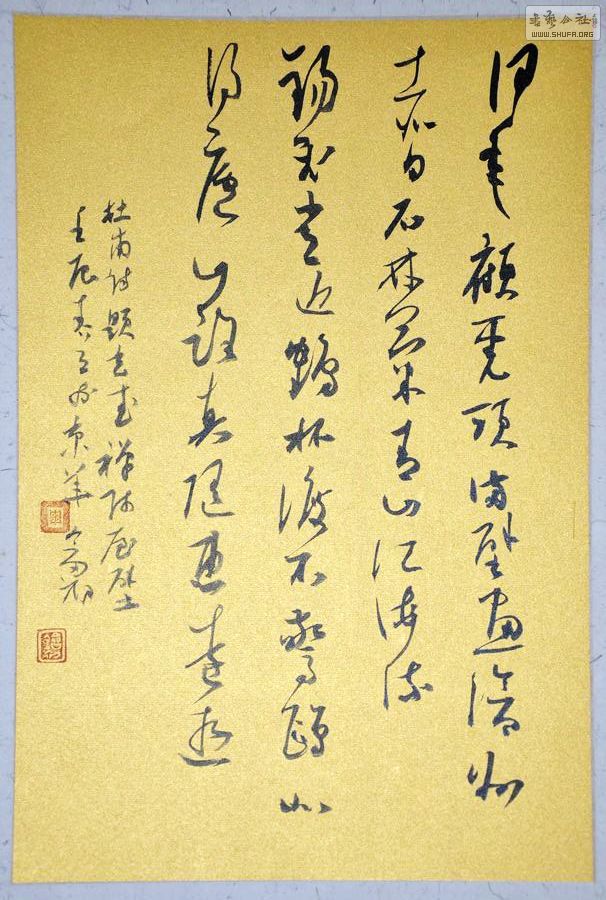 何年顧虎頭滿壁畫滄州
赤日石林氣青山江海流
錫飛常近鶴杯渡不驚鷗似
得廬山路真隨惠遠遊
杜甫詩題玄武禪師屋壁
壬辰春之於京華
書藝公社
WWW.SHUFA.ORG